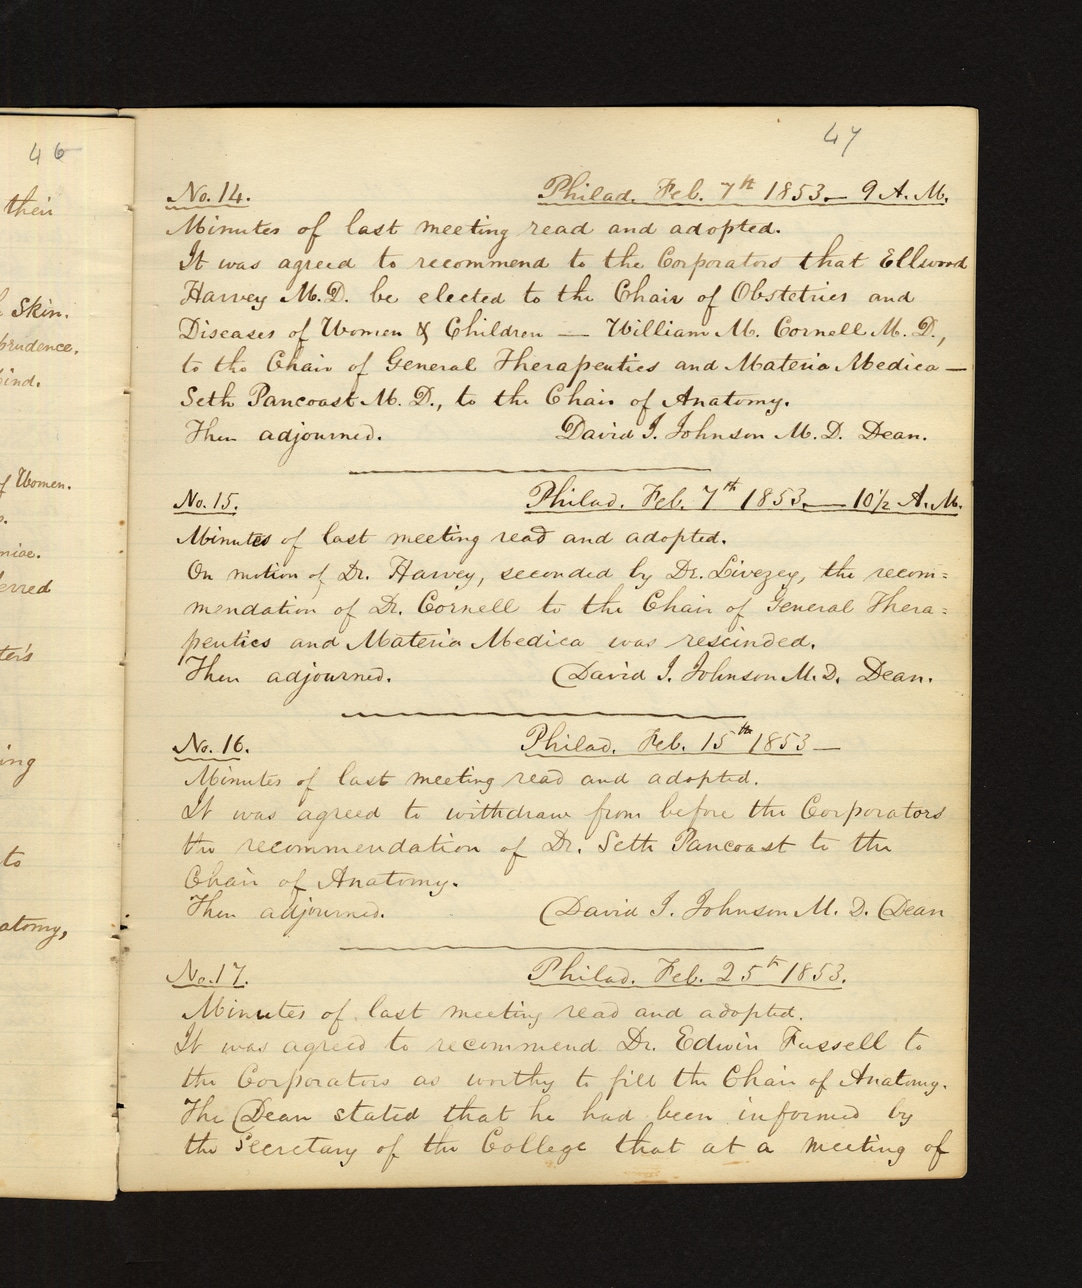 46
their
Skin.
prudence.
ind.
of Women.
niae.
erred
ter's
ing
to
atomy,
47
No. 14. Philad. Feb. 7th 1853.— 9 A. M.
Minutes of last meeting read and adopted.
It was agreed to recommend to the Corporators that Ellwood
Harvey M.D. be elected to the Chair of Obstetrics and
Diseases of Women & Children — William M. Cornell M. D.,
to the Chair of General Therapeutics and Materia Medica —
Seth Pancoast M. D., to the Chair of Anatomy.
Then adjourned. David J. Johnson M. D. Dean.
No. 15. Philad. Feb. 7th 1853.— 10 1/2 A. M.
Minutes of last meeting read and adopted.
On motion of Dr. Harvey, seconded by Dr. Livezey, the recom=
mendation of Dr. Cornell to the Chair of General Thera=
peutics and Materia Medica was rescinded.
Then adjourned. David J. Johnson M. D. Dean.
No. 16. Philad. Feb. 15th 1853 —
Minutes of last meeting read and adopted.
It was agreed to withdraw from before the Corporators
the recommendation of Dr. Seth Pancoast to the
Chair of Anatomy.
Then adjourned. David J. Johnson M. D. Dean
No. 17. Philad. Feb. 25th 1853.
Minutes of last meeting read and adopted.
It was agreed to recommend Dr. Edwin Fussell to
the Corporators as worthy to fill the Chair of Anatomy.
The Dean stated that he had been informed by
the Secretary of the College that at a meeting of